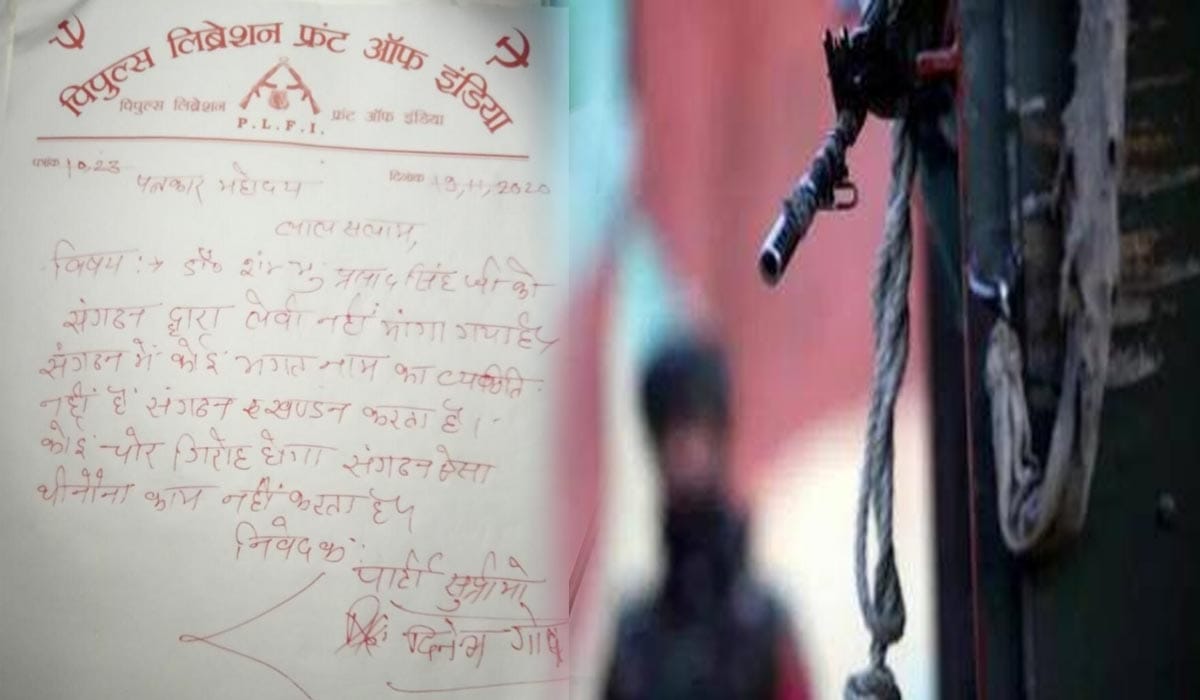 पिपुल्स लिब्रेशन फ्रंट ऑफ इंडिया
पिपुल्स लिब्रेशन फ्रंट ऑफ इंडिया
P.L.F.I.
पत्रांक 10,23 दिनांक 19,11,2020
पत्रकार महोदय
लाल सलाम,
विषय :→ डॉ० शम्भु प्रसाद सिंह जी को
संगठन द्वारा लेवी नहीं मांगा गया है
संगठन में कोई भगत नाम का व्यक्ति
नहीं है संगठन खण्डन करता है।
कोई चोर गिरोह होगा संगठन ऐसा
घीनौना काम नहीं करता है
निवेदक :
पार्टी सुप्रीमो
दिनेश गोप